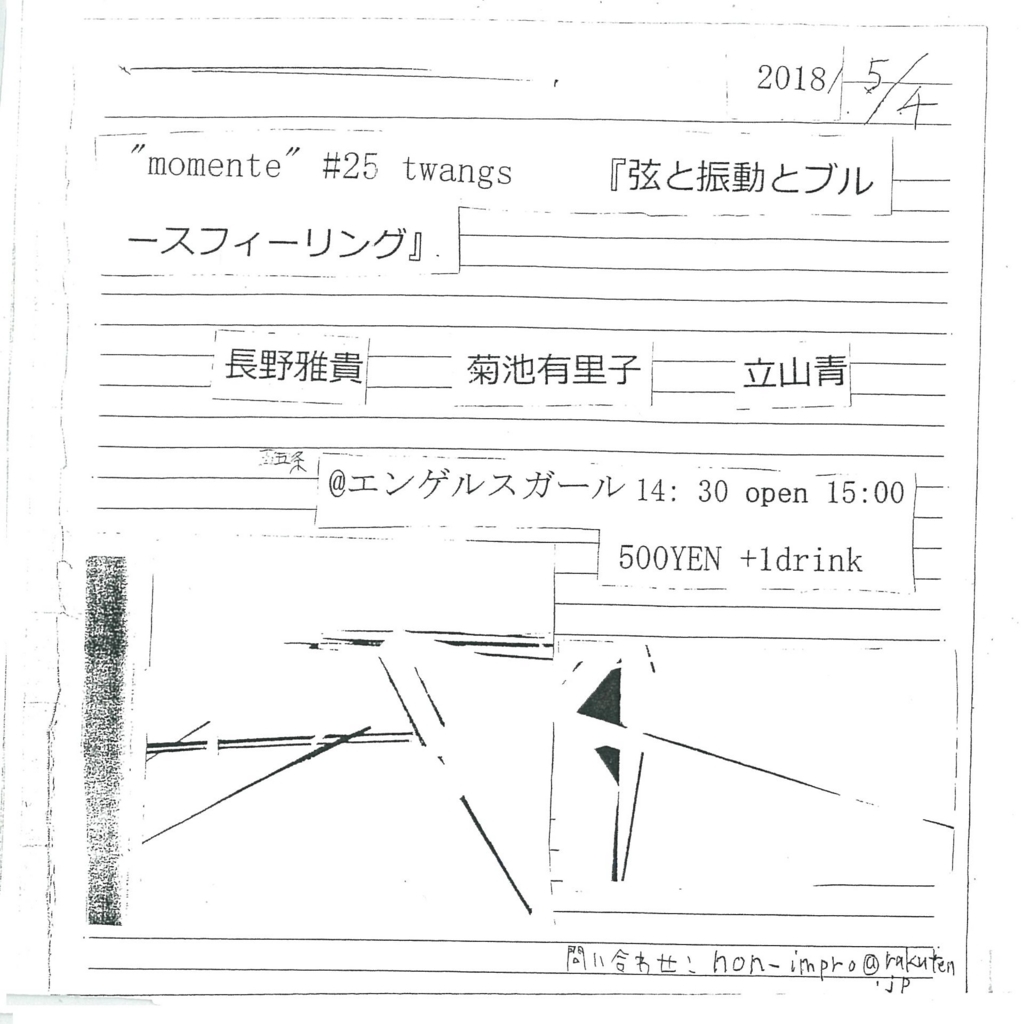 2018/5/4
"momente" #25 twangs 『弦と振動とブル
ースフィーリング』
長野雅貴 菊池有里子 立山青
西五条
@エンゲルスガール 14: 30 open 15:00
500YEN +1drink
問い合わせ: non-impro@rakuten
.jp